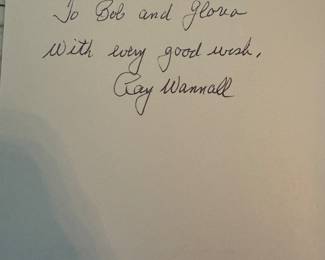 To Bob and Gloria
With every good wish,
Ray Wannall